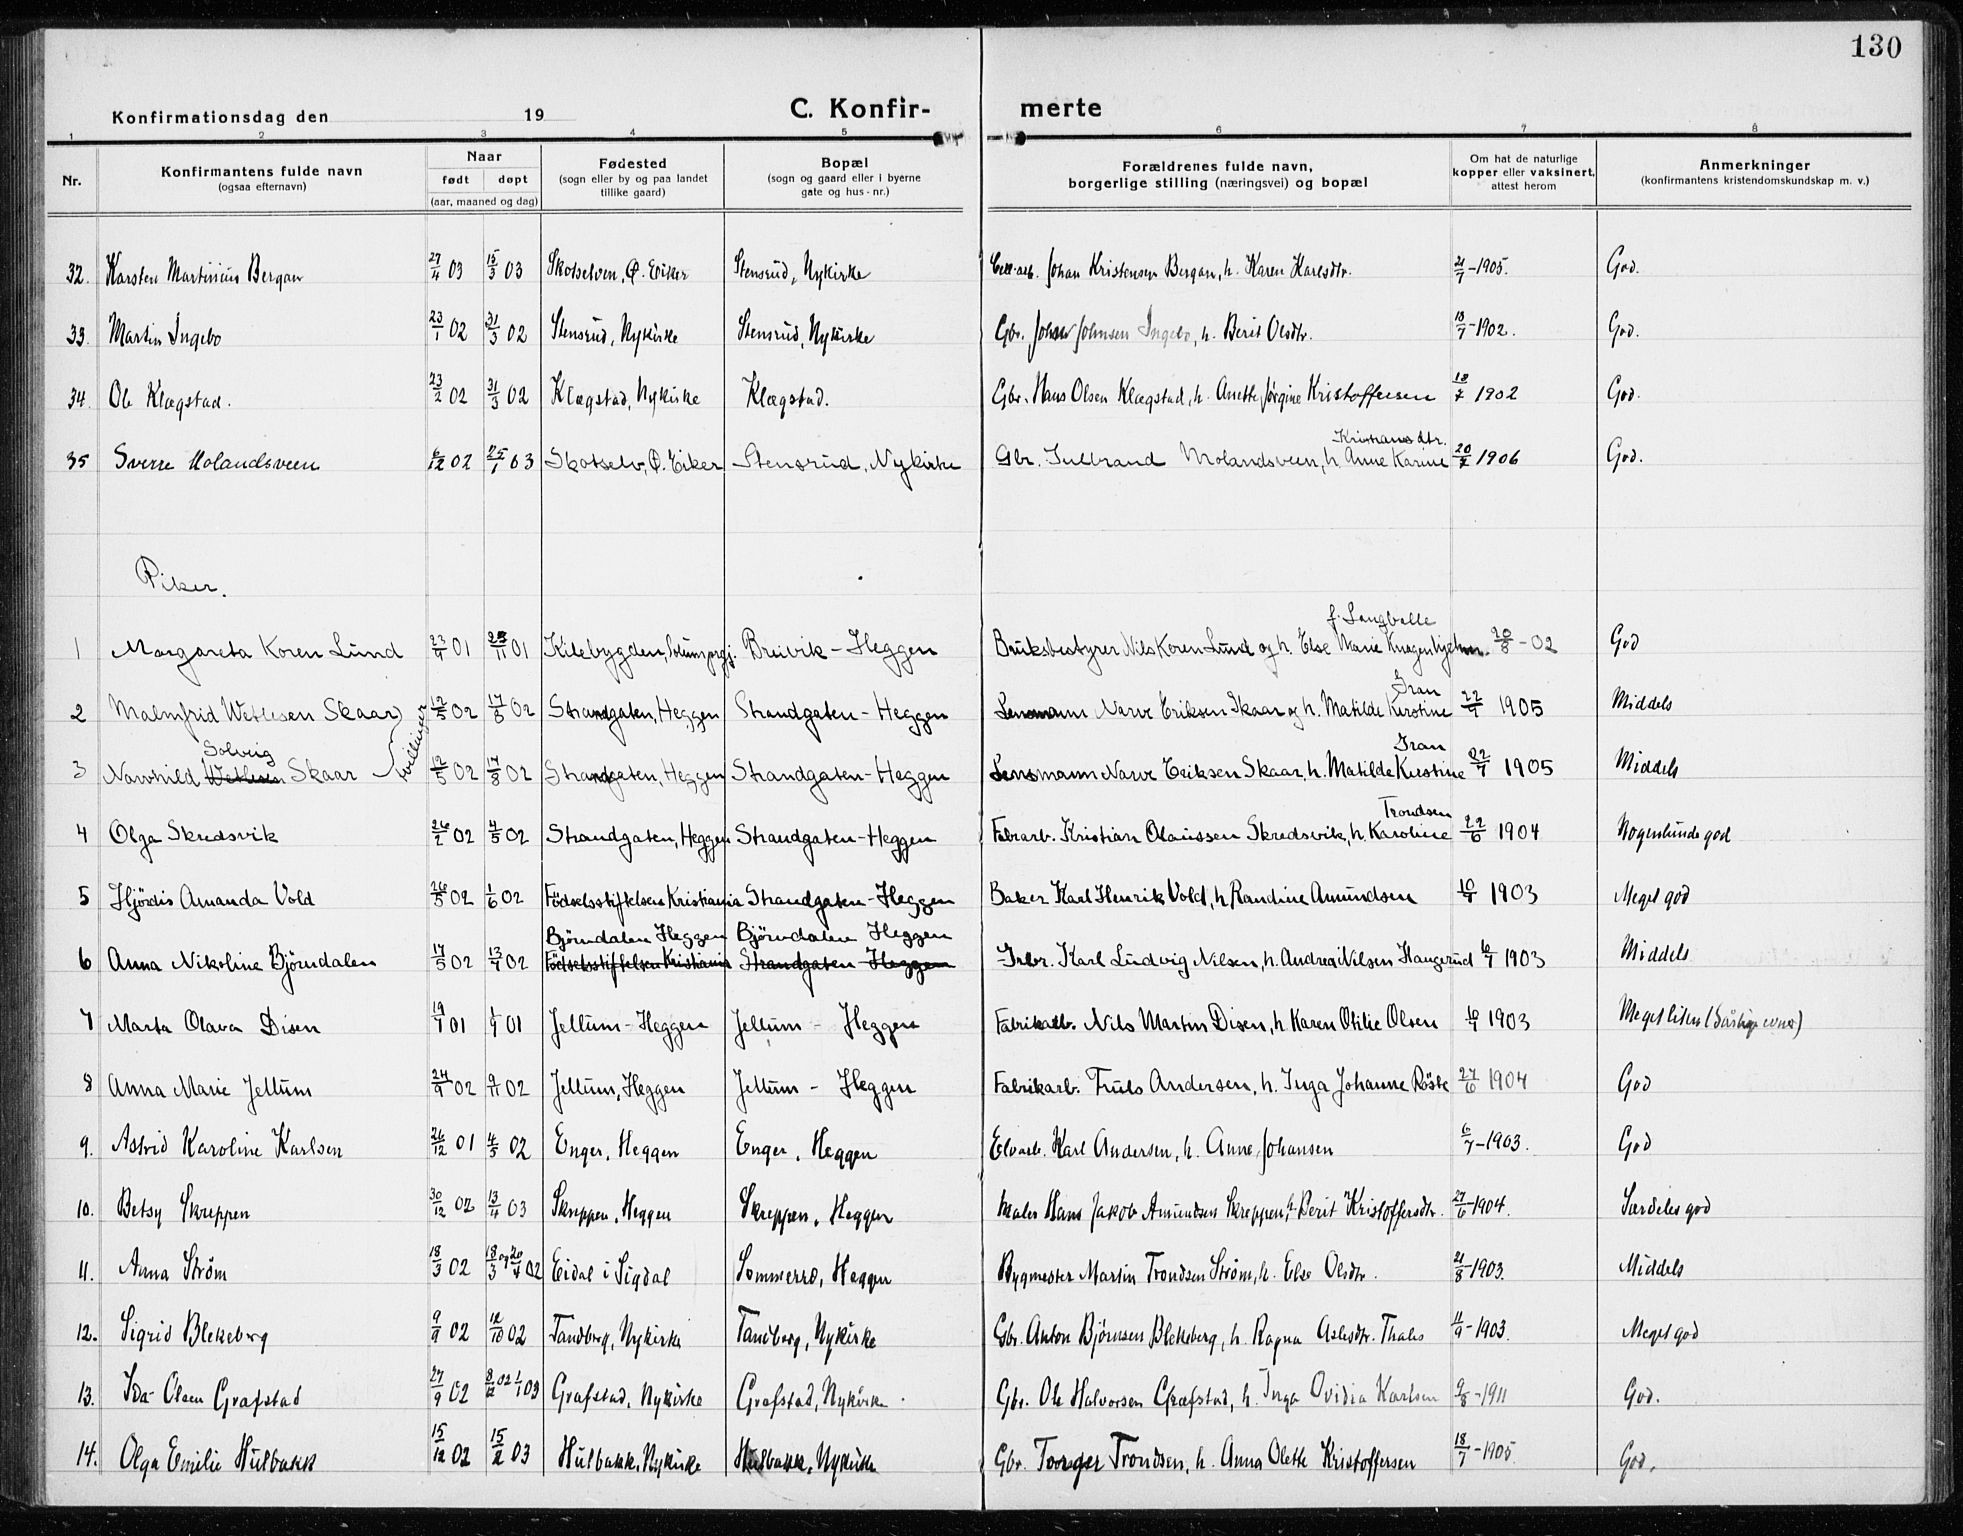 130
Konfirmationsdag den 19 C. Konfir- merte
1 2 3 4 5 6 7 8
Nr. Konfirmantens fulde navn (ogsaa efternavn) Naar født døpt (aar, maaned og dag) Fødested (sogn eller by og paa landet tillike gaard) Bopæl (sogn og gaard eller i byerne gate og hus-nr.) Forældrenes fulde navn, borgerlige stilling (næringsvei) og bopæl Om hat de naturlige kopper eller vaksinert, attest herom Anmerkninger (konfirmantens kristendomskundskap m. v.)
32. Karsten Martinius Bergan 27/4 03 15/3 03 Skotselven, Ø. Eiker Stensrud, Nykirke Johan Kristensen Bergan, h. Karen Karlsdtr. 21/7-1905. God.
33. Martin Ingebo 23/1 02 31/3 02 Stensrud, Nykirke Stensrud, Nykirke Gbr. Johan Johnsen Ingebo, h. Berit Olsdtr. 18/7-1902. God.
34. Ole Klægstad. 23/2 02 31/3 02 Klægstad, Nykirke Klægstad. Gbr. Hans Olsen Klægstad, h. Anette Jørgine Kristoffersen 18/7 1902 God.
Kristiansdtr.
35 Sverre Molandsveen 6/12 02 25/1 03 Skotselv, Ø. Eiker Stensrud, Nykirke Gbr. Gulbrand Molandsveen, h. Anne Karine 20/7 1906 God.
Piker.
f. Langballe
1 Margareta Koren Lund 23/9 01 01 Kilebygden, Breivik - Heggen Bruksbestyrer Nils Koren Lund og h. Else Marie 20/8-02 God
Gran
2 Malmfrid Wetlesen Skaar 12/5 02 17/8 02 Strandgaten, Heggen Strandgaten - Heggen Lensmann Narve Eriksen Skaar og h. Matilde Kirstine 22/7 1905 Middels
Solveig tvillinger Gran
3 Narvhild Wetlesen Skaar 12/5 02 17/8 02 Strandgaten, Heggen Strandgaten - Heggen Lensmann Narve Eriksen Skaar, h. Matilde Kirstine 22/7 1905 Middels
Trondsen
4 Olga Skredsvik 26/2 02 4/5 02 Strandgaten, Heggen Strandgaten - Heggen Fabrarb. Kristian Olaussen Skredsvik, h. Karoline 22/6 1904 Nogenlunde god
5 Hjördis Amanda Vold 26/5 02 1/6 02 Födselsstiftelsen Kristiania Strandgaten - Heggen Baker Karl Henrik Vold, h. Randine Amundsen 10/7 1903 Meget god
Björndalen Heggen Björndalen Heggen
6 Anna Nikoline Björndalen 17/5 02 13/7 02 Födselsstiftelsen Kristiania Strandgaten - Heggen Karl Ludvig Nilsen, h. Andrea Nilsen Haugerud 6/7 1903 Middels
7 Marta Olava Disen 19/7 01 1/9 01 Jellum - Heggen Jellum - Heggen Fabrikarb. Nils Martin Disen, h. Karen Otilie Olsen 10/7 1903 Meget liten (Daarlige evner)
8 Anna Marie Jellum 24/9 02 9/11 02 Jellum, Heggen Jellum - Heggen Fabrikarb. Truls Andersen, h. Inga Johanne Röste 27/6 1904 God
9. Astrid Karoline Karlsen 26/12 01 4/5 02 Enger, Heggen Enger, Heggen Elvarb. Karl Andersen, h. Anne Johansen 6/7-1903. God
10. Betsy Skreppen 30/12 02 13/4 03 Skreppen, Heggen Skreppen, Heggen Maler Hans Jakob Amundsen Skreppen, h. Berit Kristoffersdtr. 27/6-1904. Særdeles god
11. Anna Strøm 18/3 02 18/3 og 20/4 02 Eidal i Sigdal Sommerro, Heggen Bygmester Martin Trondsen Strøm, h. Else Olsdtr. 21/8-1903. Middels
12. Sigrid Blekeberg 9/9 02 12/10 02 Tandberg, Nykirke Tandberg, Nykirke Gbr. Anton Bjørnsen Blekeberg, h. Ragna Aslesdtr. Thales 11/9-1903. Meget god
13. Ida Olsen Grafstad 27/9 02 8/12 02 1/1 03 Grafstad, Nykirke Grafstad, Nykirke Gbr. Ole Halvorsen Grafstad, h. Inga Ovidia Karlsen 9/8-1911 God.
14. Olga Emilie Hulbakk 15/12 02 15/2 03 Hulbakk, Nykirke Hulbakk, Nykirke Gbr. Torger Trondsen, h. Anna Olette Kristoffersen 18/7-1905. God.